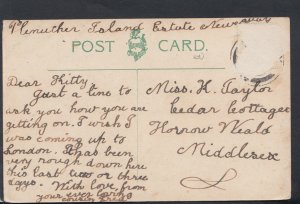 Island Estate
POST CARD.
Dear Kitty
Just a line to
ask you how you are
getting on. I wish I
was coming up to
London. It has been
very rough down here
this last two or three
days. With love, from
your ever loving
cousin
Miss. K. Taylor
Cedar Cottages
Harrow Weald
Middlesex